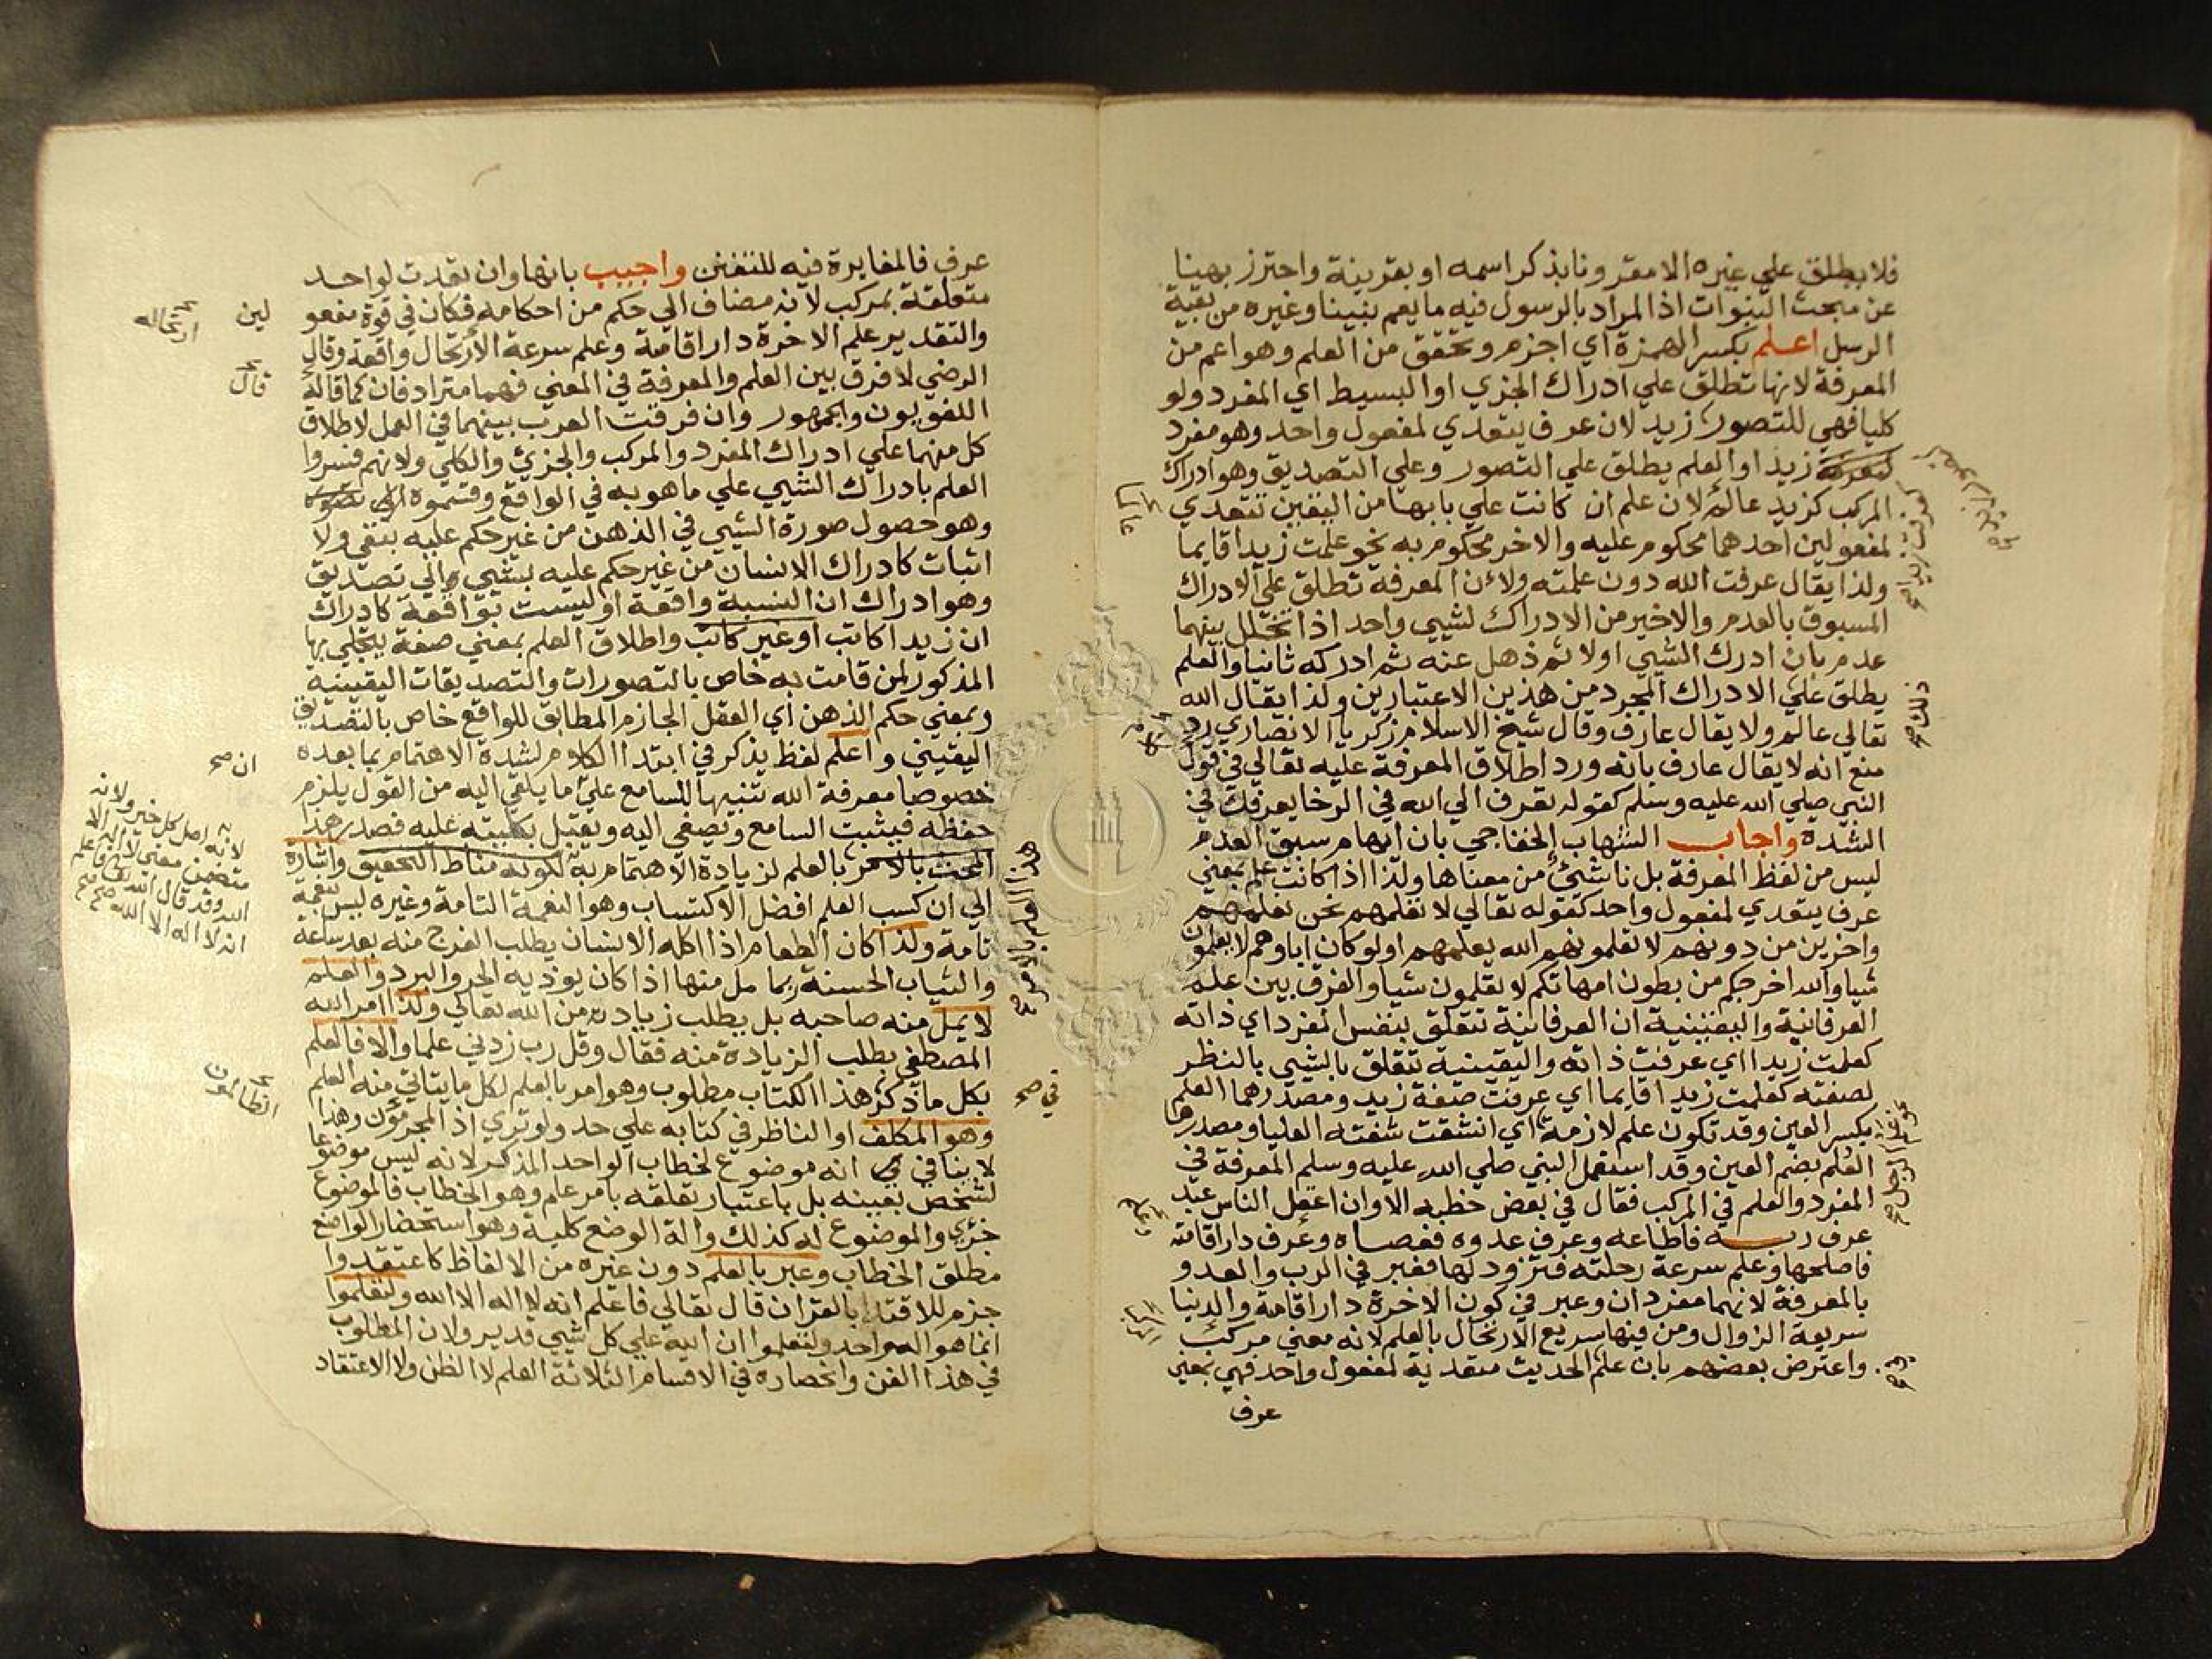 فلا يطلق علي غيره الا مقرونا بذكر اسمه او بقرينة واحترز بهينا
عن مبحث النبوات اذ المراد بالرسول فيه ما يعم نبينا وغيره من بقية
الرسل اعلم بكسر الهمزة اي اجزم وتحقق من العلم وهو اعم من
المعرفة لانها تطلق علي ادراك الجزي او البسيط اي المفرد ولو
كليا فهي للتصور زيد لان عرف يتعدي لمفعول واحد وهو مفرد
زيد او العلم يطلق علي التصور وعلي التصديق وهو ادراك
المركب كزيد عالم لان علم ان كانت علي بابها من اليقين تتعدي
لمفعولين احدهما محكوم عليه والاخر محكوم به نحو علمت زيدا قايما
ولذا يقال عرفت الله دون علمته ولان المعرفة تطلق علي الادراك
المسبوق بالعدم والاخير من الادراك لشيي واحد اذا تخلل بينهما
عدم بان ادرك الشيي اولا ثم ذهل عنه ثم ادركه ثانيا والعلم
يطلق علي الادراك المجرد من هذين الاعتبارين ولذا يقال الله
تعالي عالم ولا يقال عارف وقال شيخ الاسلام زكريا الانصاري رد
منع انه لا يقال عارف بانه ورد اطلاق المعرفة عليه تعالي في قول
النبي صلي الله عليه وسلم كقوله تعرف الي الله في الرخا يعرفك في
الشدة واجاب الشهاب الخفاجي بان ايهام سبق العدم
ليس من لفظ المعرفة بل ناشئ من معناها ولذا اذا كانت علم بمعني
عرف يتعدي لمفعول واحد كقوله تعالي لا تعلمهم نحن نعلمهم
واخرين من دونهم لا تعلمونهم الله يعلمهم اولو كان اباوهم لا يعلمون
شيا والله اخرجكم من بطون امهاتكم لا تعلمون شيا والفرق بين علم
العرفانية واليقينية ان العرفانية تتعلق بنفس المفرد اي ذاته
كعلمت زيدا اي عرفت ذاته واليقينية تتعلق بالشيي بالنظر
لصفته كعلمت زيدا قايما اي عرفت صفة زيد ومصدرهما العلم
بكسر العين وقد تكون علم لازمة اي انشقت شفته العليا ومصدرها
العلم بضم العين وقد استعمل النبي صلي الله عليه وسلم المعرفة في
المفرد والعلم في المركب فقال في بعض خطبه الا وان اعقل الناس عبد
عرف ربه فاطاعه وعرف عدوه فعصاه وعرف دار اقامته
فاصلحها وعلم سرعة رحلته فتزود لها فعبر في الرب والعدو
بالمعرفة لانهما مفردان وعبر في كون الاخرة دار اقامة والدنيا
سريعة الزوال ومن فيها سريع الارتحال بالعلم لانه معني مركب
واعترض بعضهم بان علم الحديث متعدية لمفعول واحد فهي بمعني
عرف
ذلك صح
عرف فالمغايرة فيه للتفنن واجيب بانها وان تعدت لواحد
متعلقة بمركب لانه مضاف الي حكم من احكامه فكان في قوة مفعو
لين
ارتحاله
والتقدير علم الاخرة دار اقامة وعلم سرعة الارتحال واقعة وقال
الرضي لا فرق بين العلم والمعرفة في المعني فهما مترادفان كما قاله
قال
اللغويون والجمهور وان فرقت العرب بينهما في العمل لاطلاق
كل منهما علي ادراك المفرد والمركب والجزئ والكلي ولانهم فسروا
العلم بادراك الشيي علي ما هو به في الواقع وقسموه الي تصور
وهو حصول صورة الشيي في الذهن من غير حكم عليه بنفي ولا
اثبات كادراك الانسان من غير حكم عليه بشيي والي تصديق
وهو ادراك ان النسبة واقعة او ليست بواقعة كادراك
ان زيدا كاتب او غير كاتب واطلاق العلم بمعني صفة يتجلي بها
المذكور لمن قامت به خاص بالتصورات والتصديقات اليقينية
وبمعني حكم الذهن اي العقل الجازم المطابق للواقع خاص بالتصديق
اليقيني واعلم لفظ يذكر في ابتدا الكلام لشدة الاهتمام بما بعده
ان صح
خصوصا معرفة الله تنبيها للسامع علي ما يلقي اليه من القول يلزم
حفظه فيثبت السامع ويصغي اليه ويقبل بكليته عليه فصدر هذا
المبحث بالامر بالعلم لزيادة الاهتمام به لكونه مناط التحقيق واشارة
الي ان كسب العلم افضل الاكتساب وهو النعمة التامة وغيره ليس نعمة
لانه اصل كل خير ولانه
انه لا اله الا الله صح
تامة ولذا كان الطعام اذا اكله الانسان يطلب الفرج منه بعد ساعة
والثياب الحسنة ربما مل منها اذا كان يوذيه الحر والبرد والعلم
لا يمل منه صاحبه بل يطلب زيادته من الله تعالي ولذا امر الله
المصطفي بطلب الزيادة منه فقال وقل رب زدني علما والا فالعلم
بكل ما ذكر هذا الكتاب مطلوب وهو امر بالعلم لكل ما يتاتي منه العلم
في صح
الظالمون
وهو المكلف او الناظر في كتابه علي حد ولو تري اذ المجرمون وهذا
لا ينافي انه موضوع لخطاب الواحد المذكر لانه ليس موضوعا
لشخص بعينه بل باعتبار تعلقه بامر علم وهو الخطاب فالموضوع
جزي والموضوع له كذلك والة الوضع كلية وهو استحضار الواضع
مطلق الخطاب وعبر بالعلم دون غيره من الالفاظ كاعتقدوا
جزم للاقتدا بالقران قال تعالي فاعلم انه لا اله الا الله وليعلموا
انما هو اله واحد ولتعلموا ان الله علي كل شيي قدير ولان المطلوب
في هذا الفن وانحصاره في الاقسام الثلاثة العلم لا الظن ولا الاعتقاد